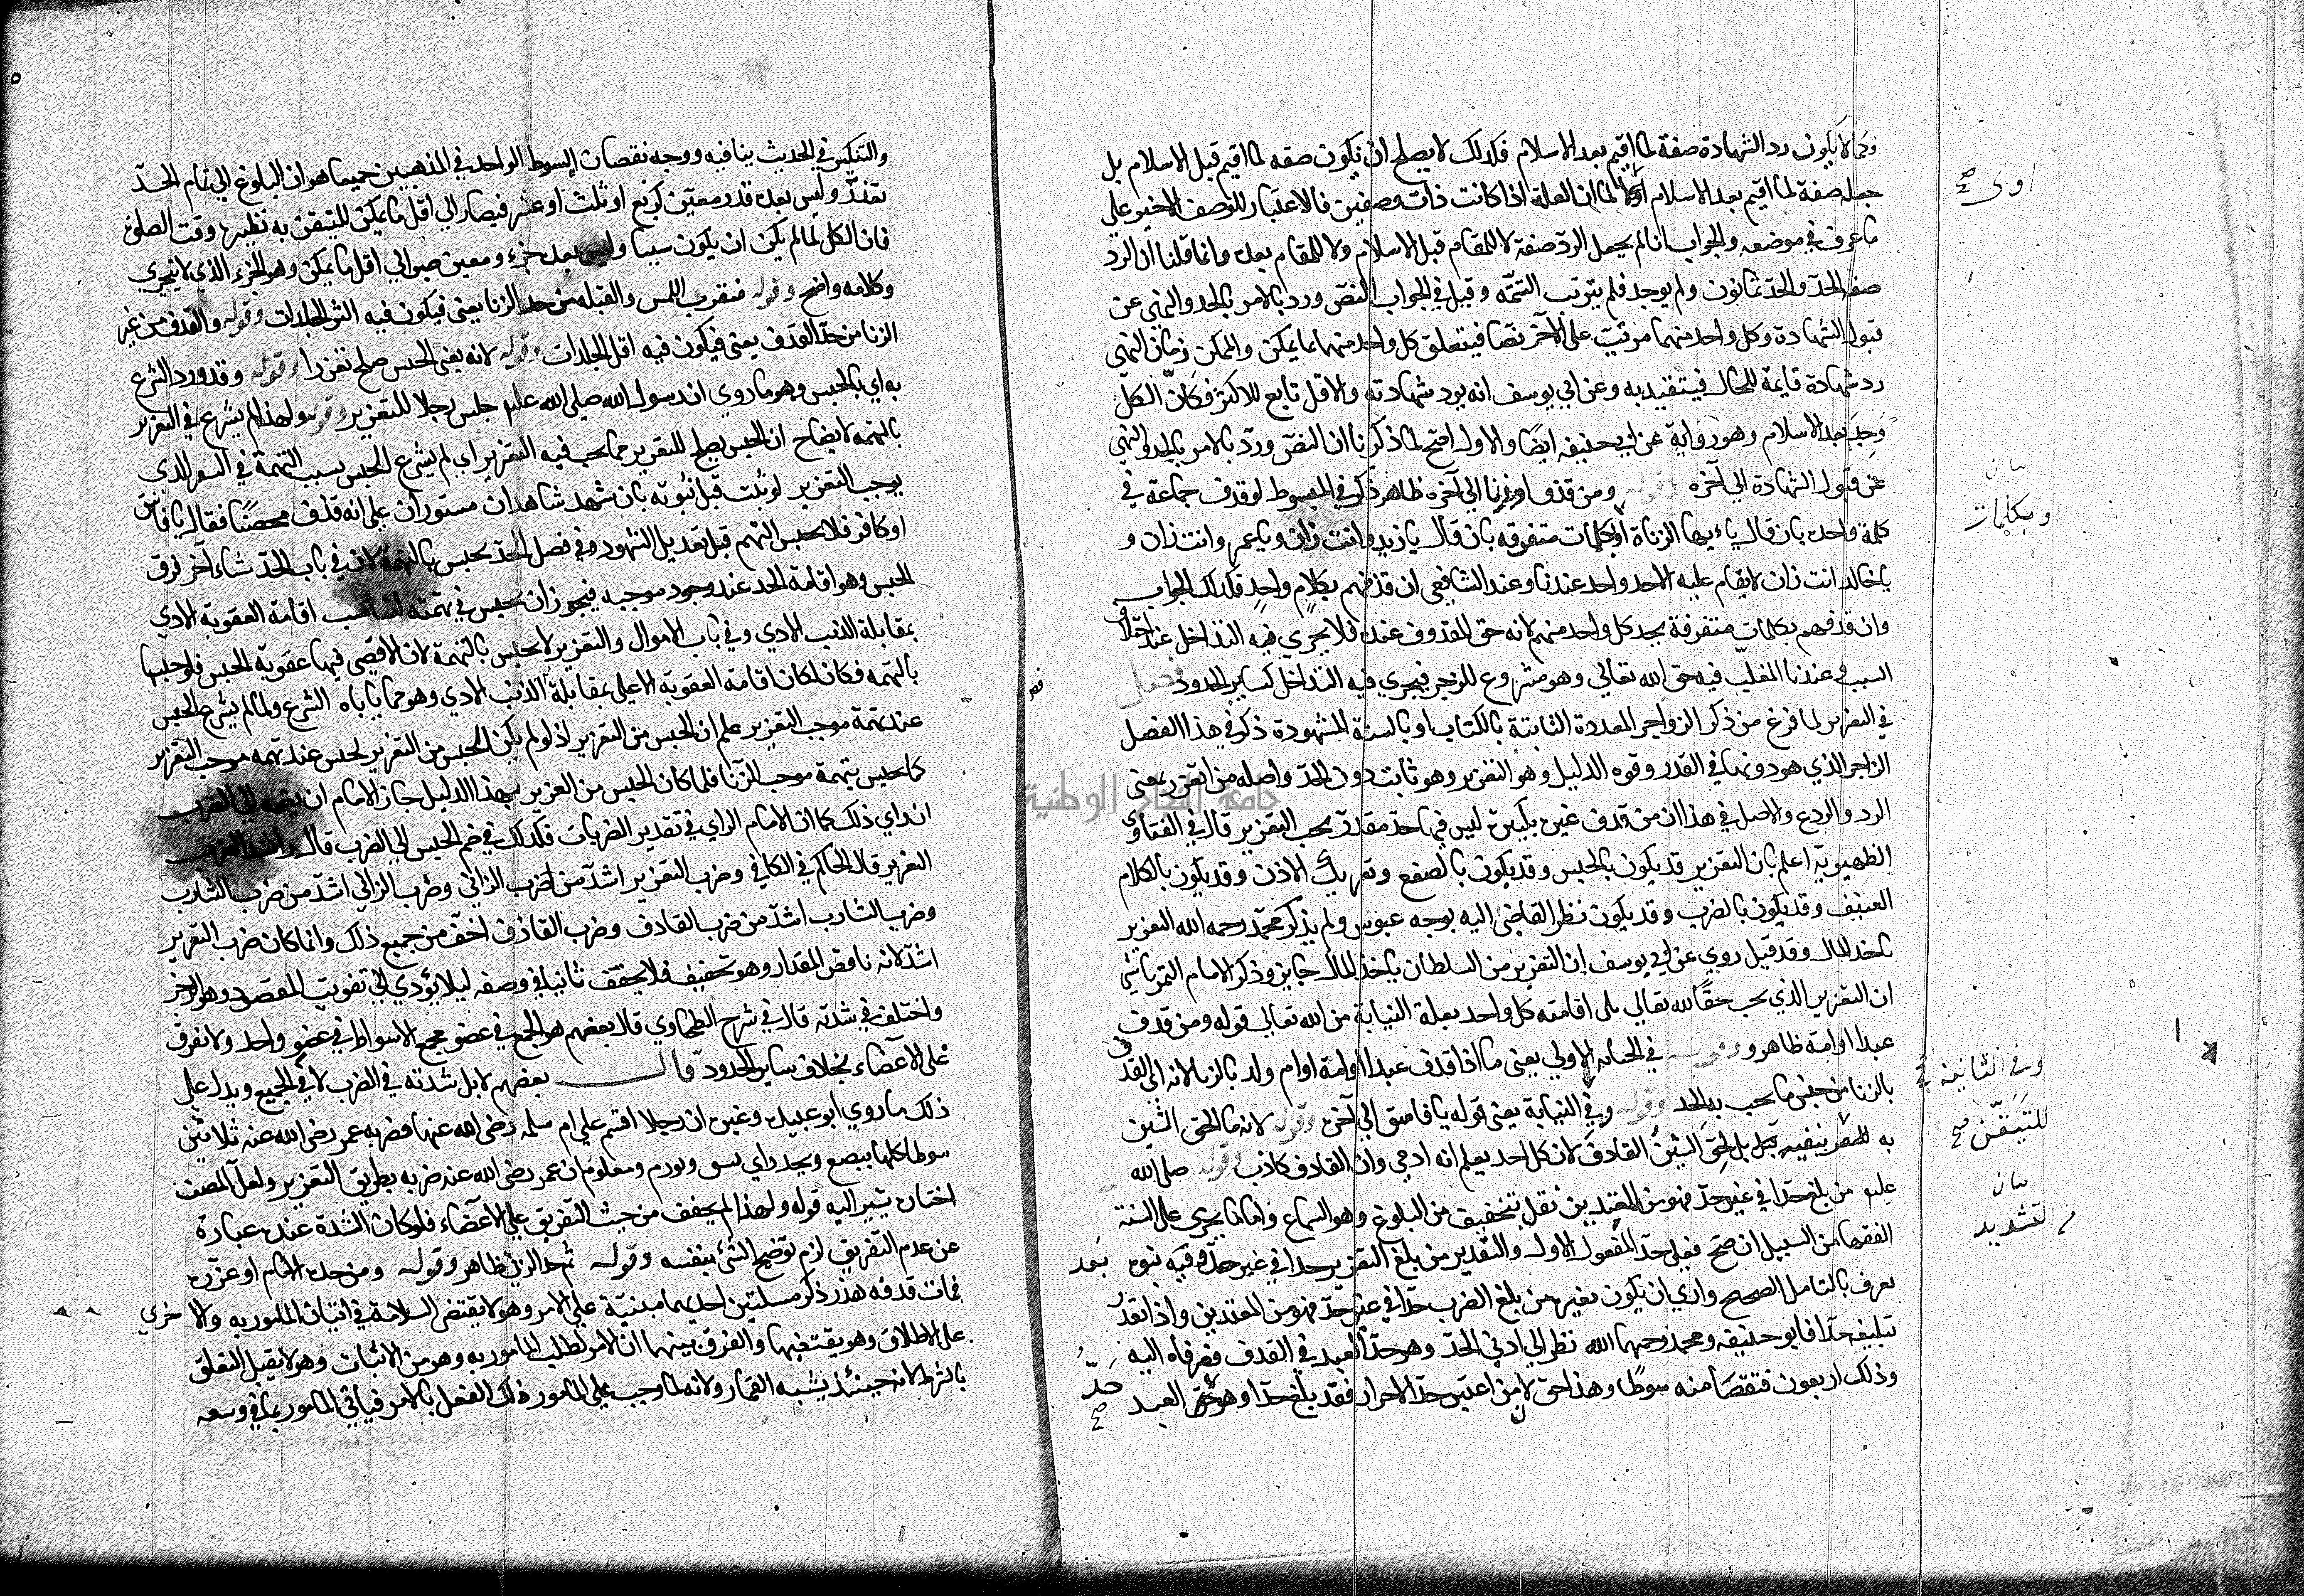 وكما لا يكون رد الشهادة صفة لما اقيم بعد الاسلام فكذلك لا يصلح ان يكون صفه لما اقيم قبل الاسلام بل
جعله صفة لما اقيم بعد الاسلام اولى لما ان العلة اذا كانت ذات وصفين فالاعتبار للوصف الاخير على
ما عرف في موضعه والجواب انا لم يجعل الرد صفة لا للمقام قبل الاسلام ولا للمقام بعده وانما قلنا ان الرد
صفة الحد والحد ثمانون ولم يوجد فلم يترتب التتمه وقيل في الجواب النص ورد بالامر بالجلد والنهي عن
قبول الشهادة وكل واحد منهما مرتب على الآخر نصا فيتعلق كل واحد منهما بما يمكن والممكن زمان النهي
رد شهادة قايمة للحال فيتقيد به وعن ابي يوسف انه يرد شهادته والاقل تابع للاكثر فكان الكل
وجد بعد الاسلام وهو رواية عن ابي حنيفه ايضا والاول اصح لما ذكرنا ان النص ورد بالامر بالجلد والنهي
عن قبول الشهادة الى آخره قوله ومن قذف او زنا الى آخره ظاهر ذكر في المبسوط لو قذف جماعة في
كلمة واحده بان قال يا ءيها الزناة او بكلمات متفرقه بان قال يا زيد انت زان ويا عمرو انت زان و
يا خالد انت زان لا يقام عليه الا حد واحد عندنا وعند الشافعي ان قذفهم بكلام واحد فكذلك الجواب
وان قذفهم بكلمات متفرقة يحد كل واحد منهم لانه حق المقذوف عنده فلا يجري فيه التداخل عند اختلاف
السبب وعندنا المغلب فيه حق الله تعالى وهو مشروع للزجر فيجري فيه التداخل كساير الحدود فصل
في التعزير لما فرغ من ذكر الزواجر المقدرة الثابتة بالكتاب او بالسنة المشهورة ذكر في هذا الفصل
الزاجر الذي هو دونها في القدر وقوه الدليل وهو التعزير وهو ثابت دون الحد واصله من العزر بمعنى
الرد والردع والاصل في هذا ان من قذف غيره بكبيرة ليس فيها حد مقدر يجب التعزير قال في الفتاوى
الظهيرية اعلم بان التعزير قد يكون بالحبس وقد يكون بالصفع وتعريك الاذن وقد يكون بالكلام
العنيف وقد يكون بالضرب وقد يكون نظر القاضي اليه بوجه عبوس ولم يذكر محمد رحمه الله التعزير
باخذ المال وقد قيل روي عن ابي يوسف ان التعزير من السلطان باخذ المال جايز وذكر الامام التمرتاشي
ان التعزير الذي يجب حقا لله تعالى يلى اقامته كل واحد بعلة النيابة من الله تعالى قوله ومن قذف
عبدا او امة ظاهر وقوله في الجنايه الاولى يعني ما اذا قذف عبدا او امة او ام ولد بالزنا لانه اي القذف
بالزنا من جنس ما يجب به الحد وقوله وفي الثانية يعني قوله يا فاسق الى آخره وقوله لانه ما الحق الشين
به بل الحق الشين القاذف لان كل احد يعلم انه ادمي وان القاذف كاذب وقوله صلى الله
عليه من بلغ حدا في غير حد فهو من المعتدين نقل بتخفيف من البلوغ وهو السماع واما ما يجري على السنة
الفقها من التبليغ ان صح فعلى حد المفعول الاول والتقدير من بلغ التعزير حدا في غير حد وفيه نبوه
يعرف بالتامل الصحيح وارى ان يكون بغيره من بلغ الضرب حدا في غير حد فهو من المعتدين واذا تعذر
تبليغه حدا فابو حنيفه ومحمد رحمهما الله نظرا الى ادنى الحد وهو حد العبد في القذف فصرفاه اليه
وذلك اربعون فنقصا منه سوطا وهذا حق لان من اعتبر حد الاحرار فقد بلغ حدا وهو حد العبد
اولى صح
بيان
وبكلمات
وفي الثانية صح
للتيقن صح
بيان
م التشديد
بعد
حد صح
والتنكير في الحديث ينافيه ووجه نقصان السوط الواحد في المذهبين جميعا هو ان البلوغ الى تمام الحد
تعذر وليس بعده قدر معين كربع او ثلث او عشر فيصار الى اقل ما يمكن للتيقن به نظيره وقت الصلوة
فان الكل لما لم يكن ان يكون سببا وليس بعده جزء معين صير الى اقل ما يمكن وهو الجزء الذي لا يتجزي
وكلامه واضح وقوله فيقرب اللمس والقبله من حد الزنا يعني فيكون فيه اكثر الجلدات وقوله والقذف من غير
الزنا من حد القذف يعني فيكون فيه اقل الجلدات وقوله لانه يعني الحبس صلح تعزيرا وقوله وقد ورد الشرع
به اي بالحبس وهو ما روي ان رسول الله صلى الله عليه حبس رجلا للتعزير وقوله ولهذا لم يشرع في التعزير
بالتهمه لايضاح ان الحبس يصلح للتعزير مما يجب فيه التعزير اي لم يشرع الحبس بسبب التهمة في الشي الذي
يوجب التعزير لو ثبت قبل ثبوته بان شهد شاهدان مستوران على انه قذف محصنا فقال يا فاسق
او كافر فلا يحبس المتهم قبل تعديل الشهود وفي فصل الحد يحبس بالتهمة لان في باب الحد شاء آخر فوق
الحبس وهو اقامة الحد عند وجود موجبه فيجوز ان يحبس في تهمته لتناسب اقامة العقوبة الادنى
بمقابلة الذنب الادنى وفي باب الاموال والتعزير لا يحبس بالتهمة لان الاقصى فيها عقوبة الحبس فلو حبسها
بالتهمه فكان لكان اقامة العقوبة الاعلى بمقابلة الذنب الادنى وهو مما ياباه الشرع ولما لم يشرع الحبس
عند تهمة موجب التعزير علم ان الحبس من التعزير اذ لو لم يكن الحبس من التعزير لحبس عند تهمه موجب التعزير
كما حبس بتهمة موجب الزنا فلما كان الحبس من التعزير بهذا الدليل جاز للامام ان يضمه الى الضرب
ان راى ذلك كما ان للامام الراي في تقدير الضربات فكذلك في ضم الحبس الى الضرب قال واشد الضرب
التعزير قال الحاكم في الكافي وضرب التعزير اشد من ضرب الزاني وضرب الزاني اشد من ضرب الشارب
وضرب الشارب اشد من ضرب القاذف وضرب القاذف اخف من جميع ذلك وانما كان ضرب التعزير
اشد لانه ناقص المقدار وهو تخفيف فلا يخفف ثانيا في وصفه ليلا يؤدي الى تفويت المقصود وهو الزجر
واختلف في شدته قال في شرح الطحاوي قال بعضهم هو الجمع في عضو يجمع الاسواط في عضو واحد ولا تفرق
على الاعضاء بخلاف ساير الحدود قال بعضهم لا بل شدته في الضرب لا في الجميع ويدل على
ذلك ما روي ابو عبيد وغيره ان رجلا اقسم على ام سلمه رضى الله عنها فضربه عمر رضى الله عنه ثلاثين
سوطا كلها يبضع ويحدر اي يشق ويورم ومعلوم ان عمر رضى الله عنه ضربه بطريق التعزير ولعل المصنف
اختاره يشير اليه قوله ولهذا لم يخفف من حيث التفريق على الاعضاء فلو كان الشدة عنده عبارة
عن عدم التفريق لزم توضيح الشئ بنفسه وقوله ثم حد الزنا ظاهر وقوله ومن حده الامام او عزره
فمات فدمه هدر ذكر مسلتين احديهما مبنية على الامر وهو لا يقتضى السلامة في اتيان المامور به والاخرى
على الاطلاق وهو يقتضيها والفرق بينهما ان الامر لطلب المامور به وهو من الاثبات وهو لا يقبل التعلق
بالشرط لانه حينئذ يشبه القمار ولانه لما وجب على المامور ذلك الفعل بالامر فياتي المامور بما في وسعه
جامعة النجاح الوطنية